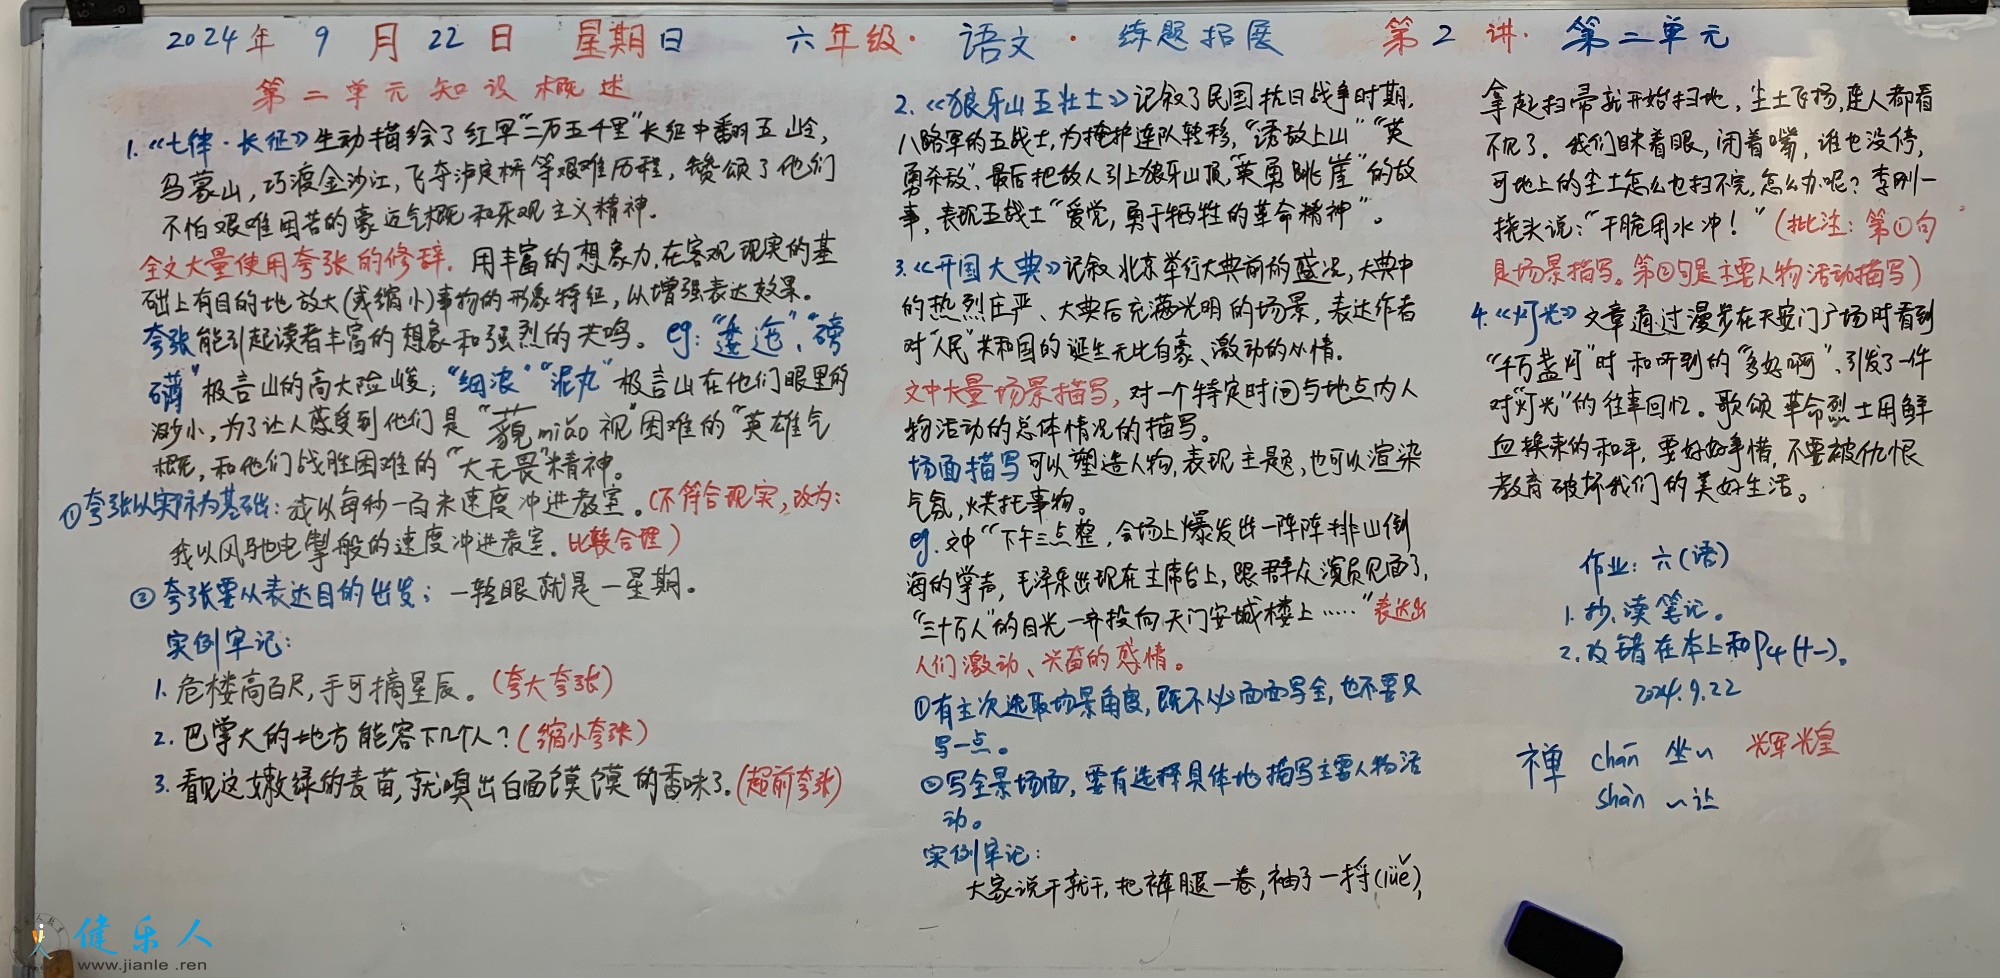 2024年 9 月 22 日 星期日 六年级·语文·练题拓展 第2讲·第二单元
第二单元知识概述
1.《七律·长征》生动描绘了红军"二万五千里"长征中翻五岭,
乌蒙山,巧渡金沙江,飞夺泸定桥等艰难历程,赞颂了他们
不怕艰难困苦的豪迈气概和乐观主义精神.
全文大量使用夸张的修辞.用丰富的想象力,在客观现实的基
础上有目的地放大(或缩小)事物的形象特征,以增强表达效果。
夸张能引起读者丰富的想象和强烈的共鸣。eg:"逶迤"、"磅
礴"极言山的高大险峻;"细浪""泥丸"极言山在他们眼里的
渺小,为了让人感受到他们是"藐miǎo视"困难的"英雄气
概,和他们战胜困难的"大无畏"精神。
①夸张以实际为基础:我以每秒一百米速度冲进教室。(不符合现实,改为:
我以风驰电掣般的速度冲进教室.比较合理)
②夸张要从表达目的出发:一转眼就是一星期。
实例牢记:
1.危楼高百尺,手可摘星辰。(夸大夸张)
2.巴掌大的地方能容下几个人?(缩小夸张)
3.看见这嫩绿的麦苗,就嗅出白面馍馍的香味了.(超前夸张)
2.《狼牙山五壮士》记叙了民国抗日战争时期,
八路军的五战士,为掩护连队转移,"诱敌上山""英
勇杀敌",最后把敌人引上狼牙山顶,"英勇跳崖"的故
事,表现五战士"爱党,勇于牺牲的革命精神"。
3.《开国大典》记叙北京举行大典前的盛况,大典中
的热烈庄严、大典后充满光明的场景,表达作者
对"人民"共和国的诞生无比自豪、激动的心情.
文中大量场景描写,对一个特定时间与地点内人
物活动的总体情况的描写。
场面描写可以塑造人物,表现主题,也可以渲染
气氛,烘托事物。
eg.文中"下午三点整,会场上爆发出一阵阵排山倒
海的掌声,毛泽东出现在主席台上,跟群众演员见面了,
"三十万人"的目光一齐投向天门安城楼上……"表达出
人们激动、兴奋的感情。
①有主次选取场景角度,既不必面面写全,也不要只
写一点。
②写全景场面,要有选择具体地描写主要人物活
动。
实例牢记:
大家说干就干,把裤腿一卷,袖子一捋(lüě),
拿起扫帚就开始扫地,尘土飞扬,连人都看
不见了.我们眯着眼,闭着嘴,谁也没停,
可地上的尘土怎么也扫不完,怎么办呢?李刚一
挠头说:"干脆用水冲!"(批注:第①句
是场景描写。第②句是主要人物活动描写)
4.《灯光》文章通过漫步在天安门广场时看到
"千万盏灯"时和听到的"多好啊",引发了一件
对"灯光"的往事回忆。歌颂革命烈士用鲜
血换来的和平,要好好事惜,不要被仇恨
教育破坏我们的美好生活。
作业:六(语)
1.抄、读笔记。
2.改错在本上和P4(十一)。
2024.9.22
禅 chán 坐~ 辉煌
shàn ~让
健乐人
www.jianle.ren